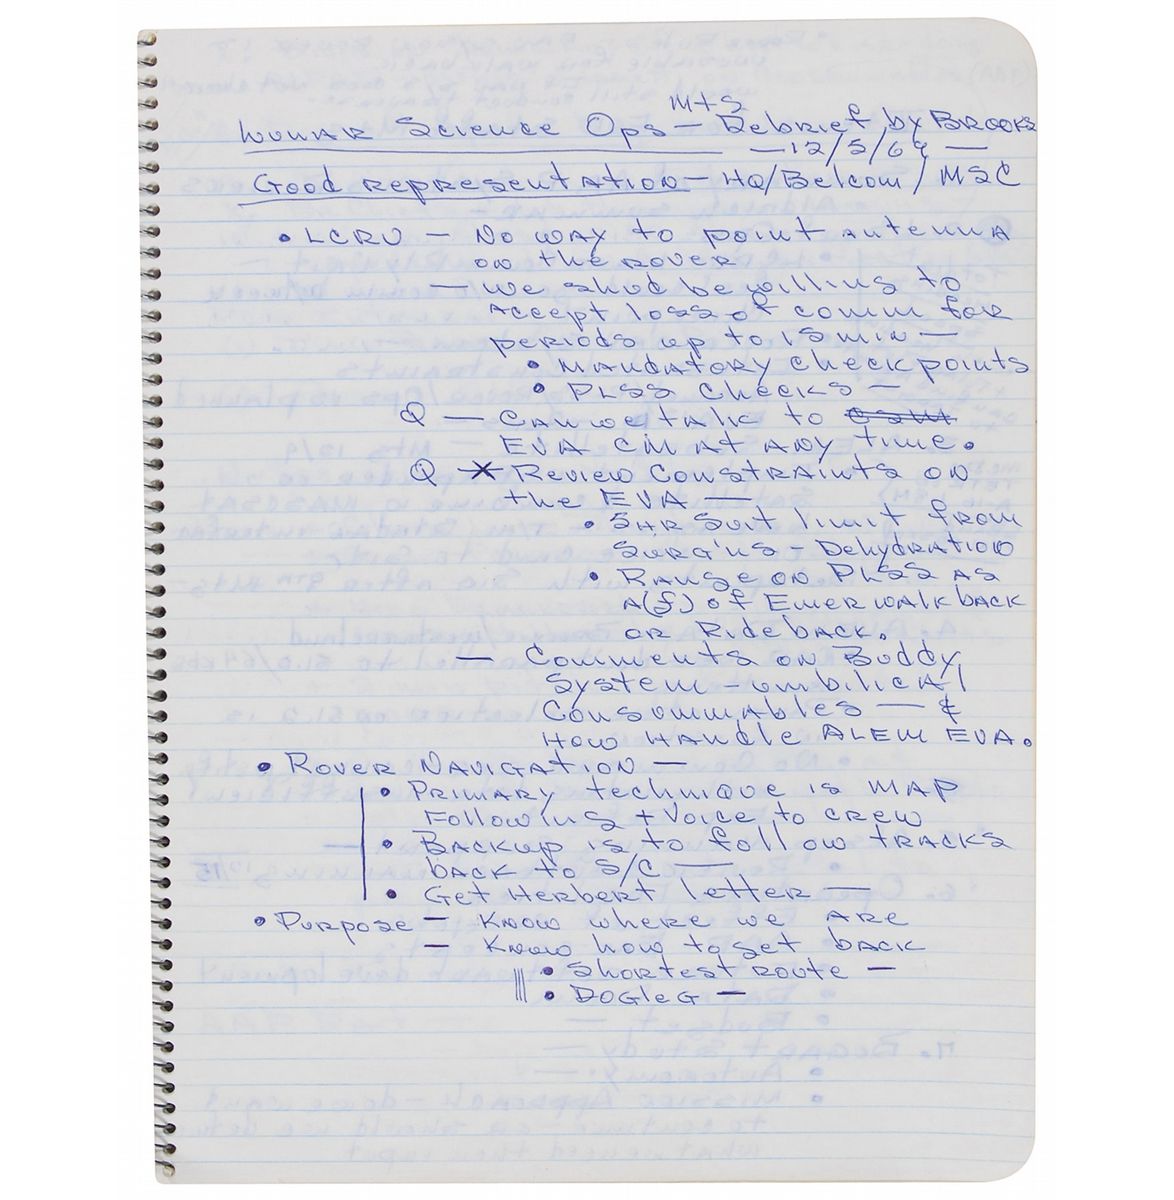 Mtg
Lunar Science Ops — Debrief by Brooks
— 12/5/69 —
Good representation — HQ/Belcom/MSC
• LCRU — No way to point antenna
on the rover
— We shud be willing to
Accept loss of comm for
periods up to 15 min —
• Mandatory check points
• PLSS Checks —
Q — Can we talk to CSM
EVA CM at any time.
Q — * Review Constraints on
the EVA —
• 5HR Suit limit from
Surg'ns — Dehydration
• Range on PLSS as
A(f) of Emer walk back
or Ride back.
— Comments on Buddy
System — umbilical
Consummables — &
How Handle ALEM EVA.
• Rover Navigation —
• Primary technique is map
Following + Voice to crew
• Backup is to follow tracks
back to S/C —
• Get Herbert letter —
• Purpose — Know where we are
— Know how to get back
• Shortest route —
• Dogleg —